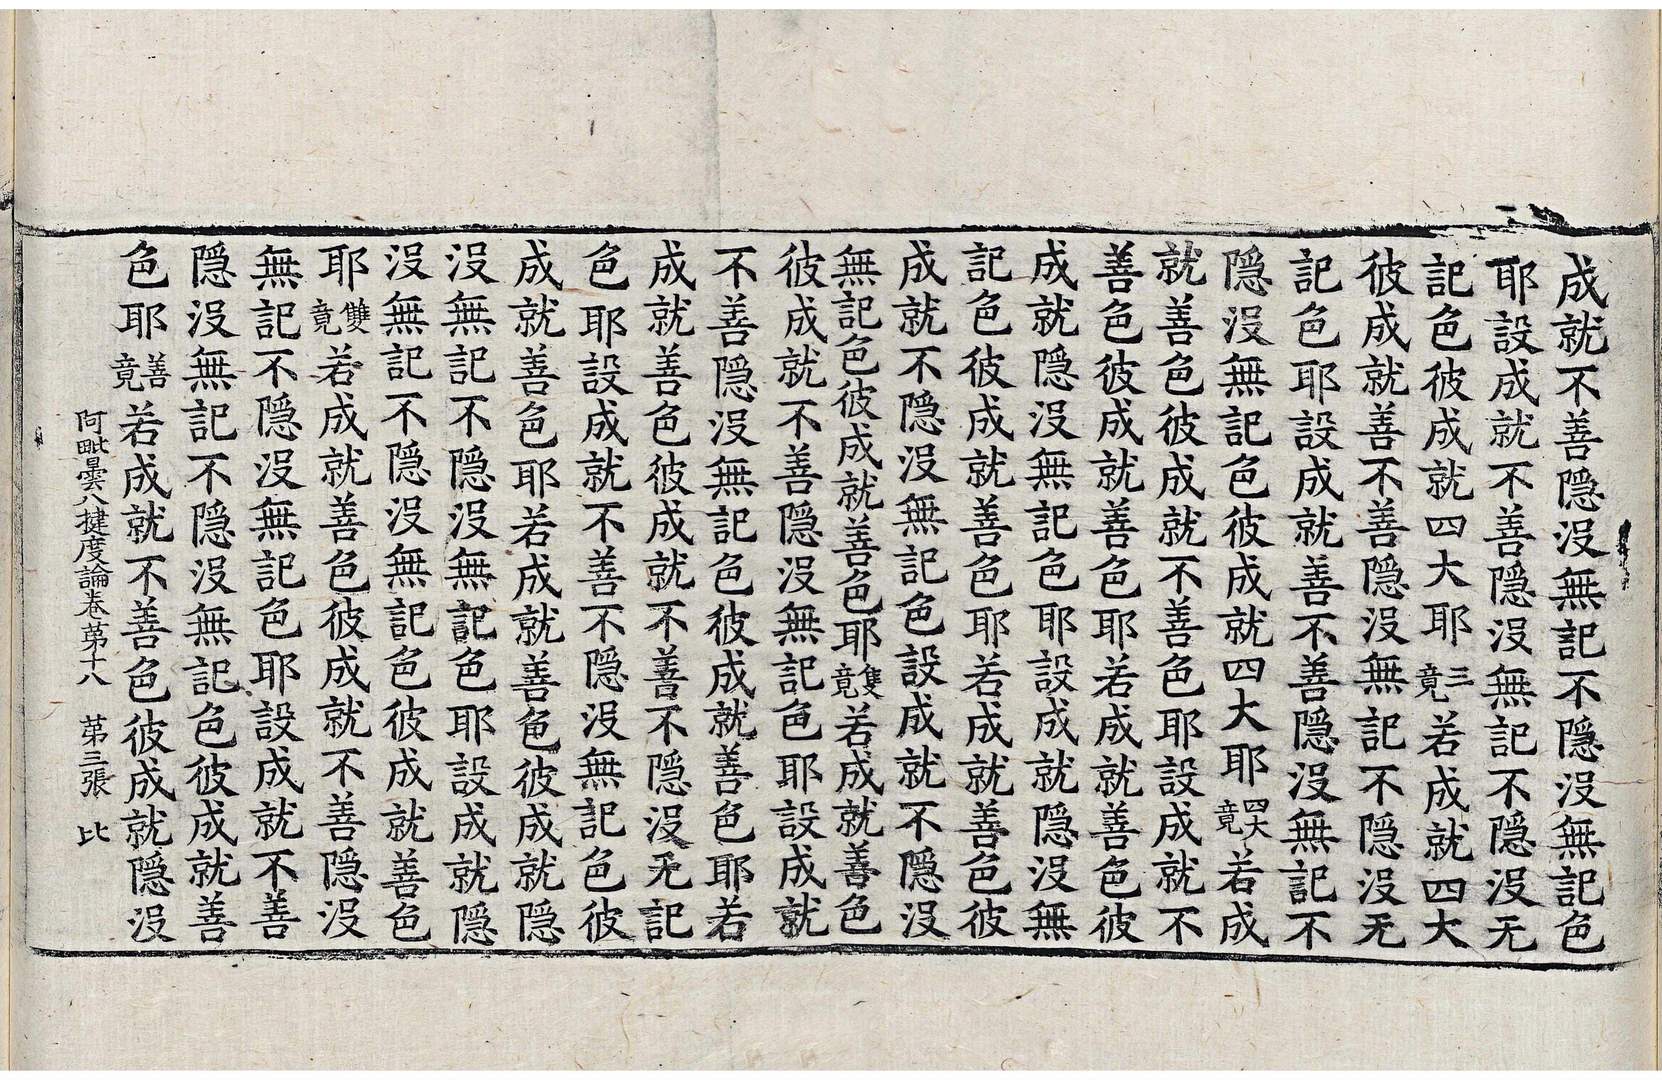 成就不善隠沒無記不隠沒無記色
耶設成就不善隠沒無記不隠沒无
記色彼成就四大耶三竟若成就四大
彼成就善不善隠沒無記不隠沒无
記色耶設成就善不善隠沒無記不
隠沒無記色彼成就四大耶四大竟若成
就善色彼成就不善色耶設成就不
善色彼成就善色耶若成就善色彼
成就隠沒無記色耶設成就隠沒無
記色彼成就善色耶若成就善色彼
成就不隠沒無記色設成就不隠沒
無記色彼成就善色耶雙竟若成就善色
彼成就不善隠沒無記色耶設成就
不善隠沒無記色彼成就善色耶若
成就善色彼成就不善不隠沒无記
色耶設成就不善不隠沒無記色彼
成就善色耶若成就善色彼成就隠
沒無記不隠沒無記色耶設成就隠
沒無記不隠沒無記色彼成就善色
耶雙竟若成就善色彼成就不善隠沒
無記不隠沒無記色耶設成就不善
隠沒無記不隠沒無記色彼成就善
色耶善竟若成就不善色彼成就隠沒
阿毗曇八揵度論卷第十八 第三張 比